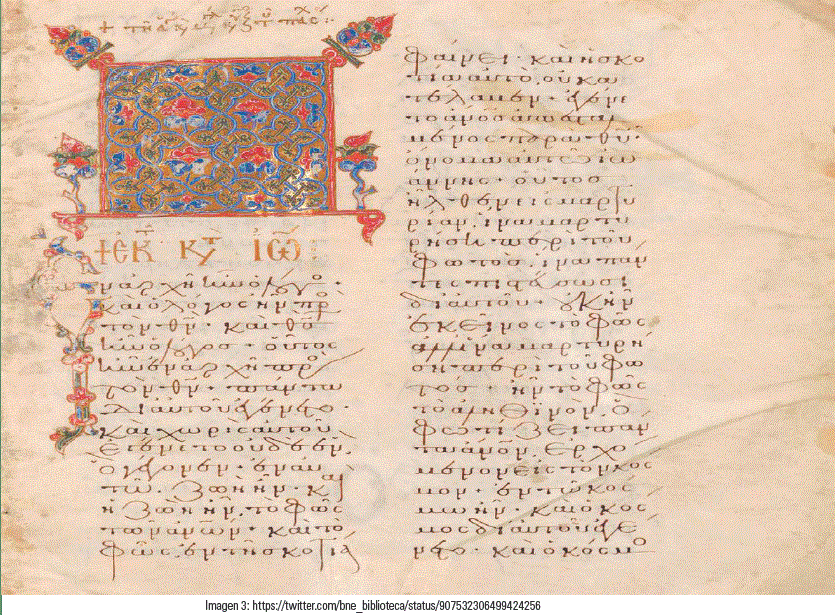 ἐκ τ κτ ἰω
ἐν ἀρχῆ ἦν ὁ λόγο·
καὶ ὁ λόγος ἦν πρ
τὸν θν· καὶ θσ
ἦν ὁ λόγοσ· οὗτος
ἦν ἐν ἀρχῆ πρ
τὸν θν· πάντα
δι αὐτοῦ ἐγένετο·
καὶ χωρὶς αὐτοῦ
ἐγένετο οὐδὲ ἕν·
ὃ γέγονεν· ἐν αὐ
τῶ· ζωὴ ἦν· κ
ἡ ζωὴ ἦν τὸ φῶς
τῶν ἀνων· καὶ τὸ
φῶς· ἐν τῆ σκοτία
φαίνει· καὶ ἡ σκο
τία αὐτὸ οὐ κα
τέλαβεν· ἐγένε
το ἄνος ἀπεσταλ
μένος παρὰ θυ·
ὄνομα αὐτῶ ἰω
άννης· οὗτος
ἦλθεν εἰς μαρτυ
ρίαν· ἵνα μαρτυ
ρήση περὶ τοῦ
φωτός· ἵνα πάν
τες πιστεύσωσι
δι αὐτοῦ· οὐκ ἦν
ἐκεῖνος τὸ φῶς
ἀλλ ἵνα μαρτυρή
ση περὶ τοῦ φω
τός· ἦν τὸ φῶς
τὸ ἀληθινόν· ὃ
φωτίζει πάν
τα ἄνον· ἐρχό
μενον εἰς τὸν κόσ
μον· ἐν τῶ κόσ
μω ἦν· καὶ ὁ κόσ
μος δι αὐτοῦ ἐγέ
νετο· καὶ ὁ κόσμο
Imagen 3: https://twitter.com/bne_biblioteca/status/907532306499424256